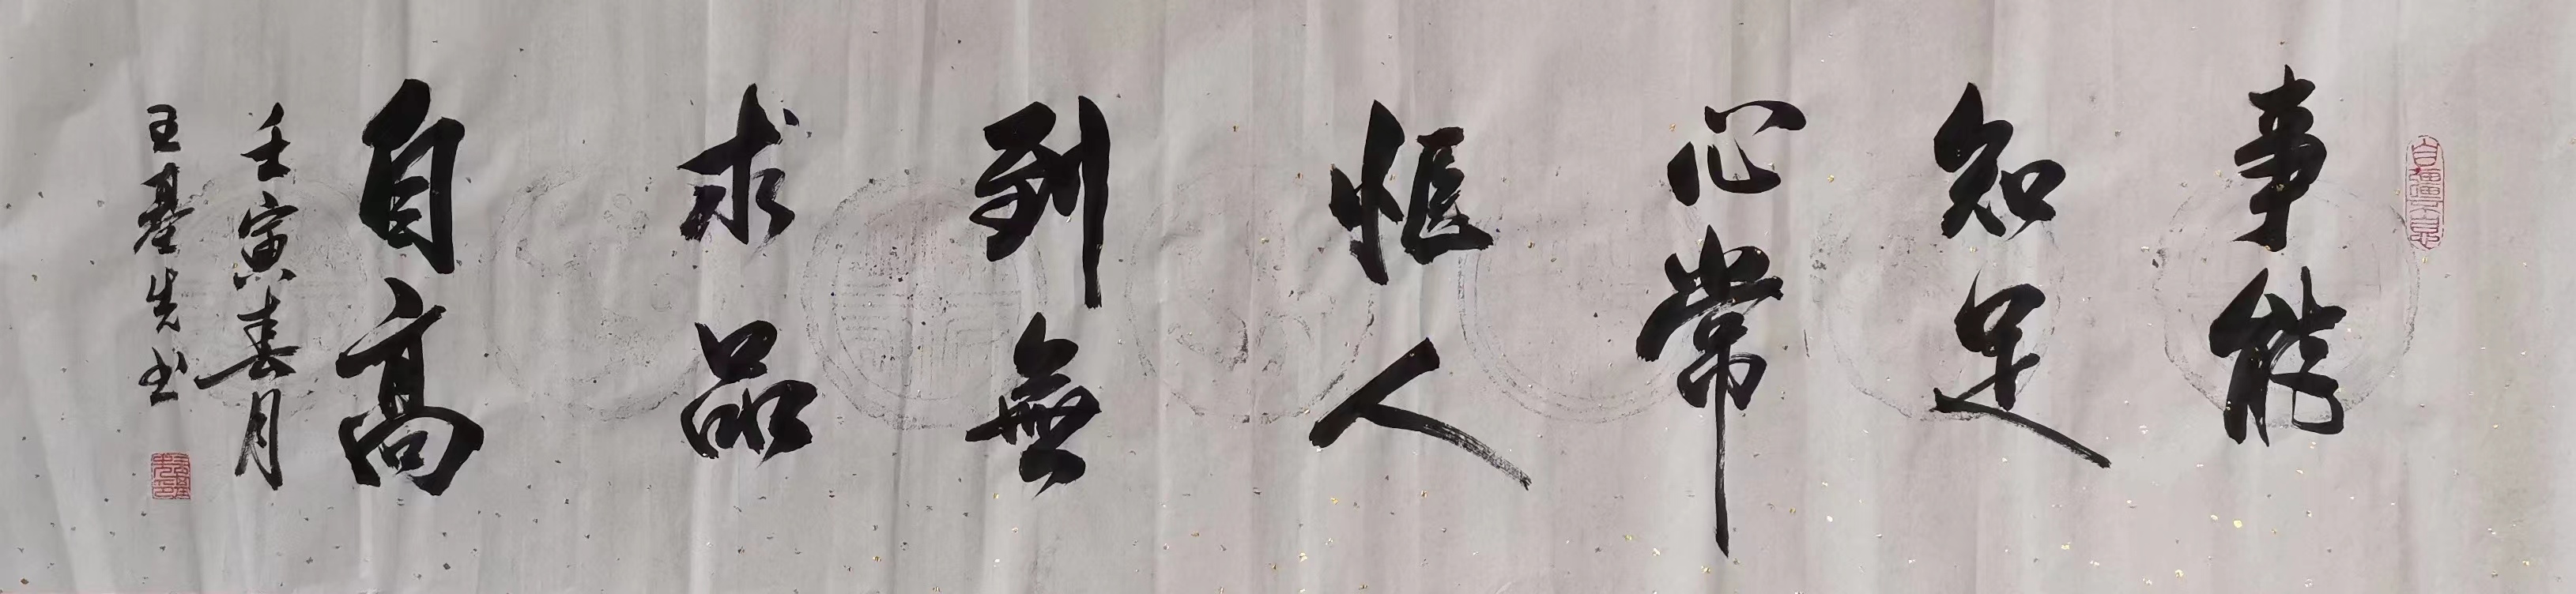 自強不息
事能
知足
心常
惬人
到無
求品
自高
壬寅春月
王基先书